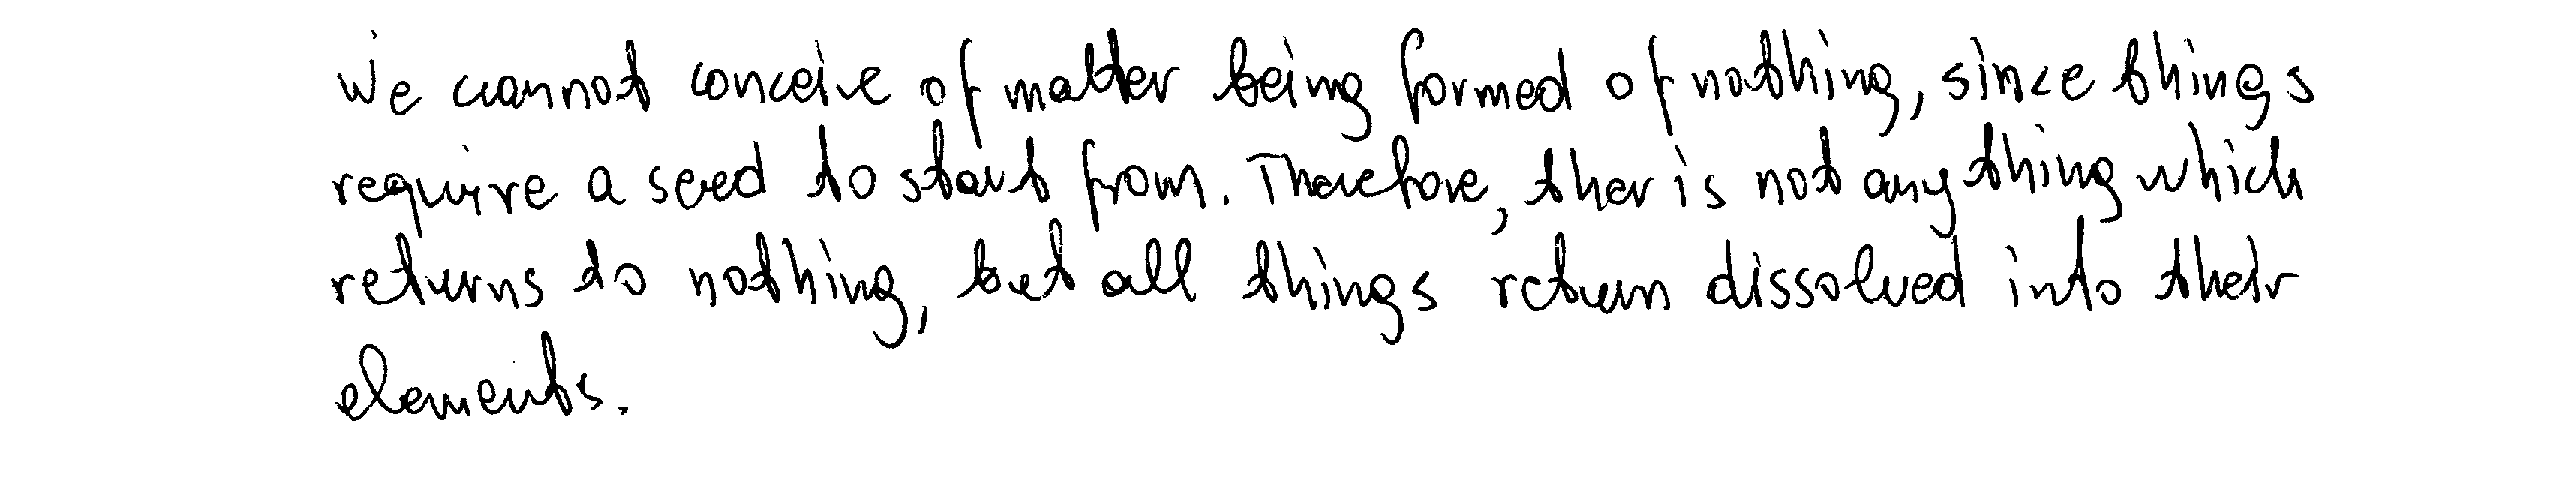 We cannot conceive of matter being formed of nothing, since things
require a seed to start from. Therefore, ther is not anything which
returns to nothing, but all things return dissolved into their
elements.